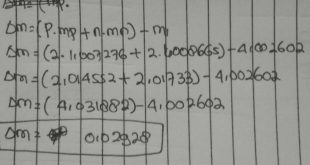 Δm=(P.mp+n.mn)-m
Δm=(2.1,007276+2.1.008665)-4,002602
Δm=(2,014552+2,01733)-4,002602
Δm=(4,031882)-4,002602
Δm= 0,02928